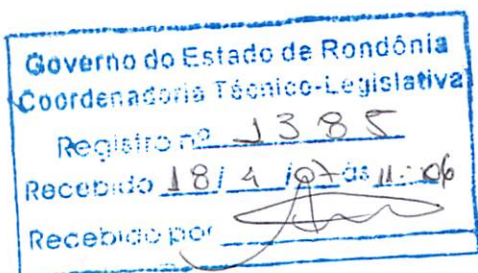 Governo do Estado de Rondônia
Coordenadoria Técnico-Legislativa
Registro nº 1385
Recebido 18/4/07 às 11:06
Recebido por